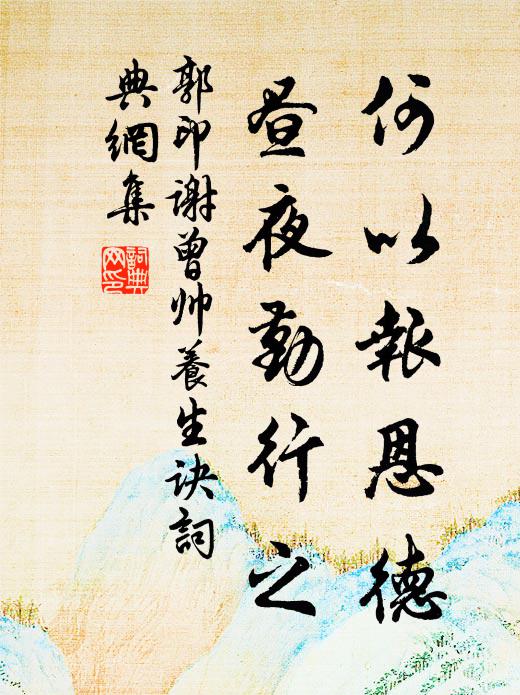 何以報恩德
晝夜勤行之
郭印谢曾帅養生诀詞
典網集
詞典网印